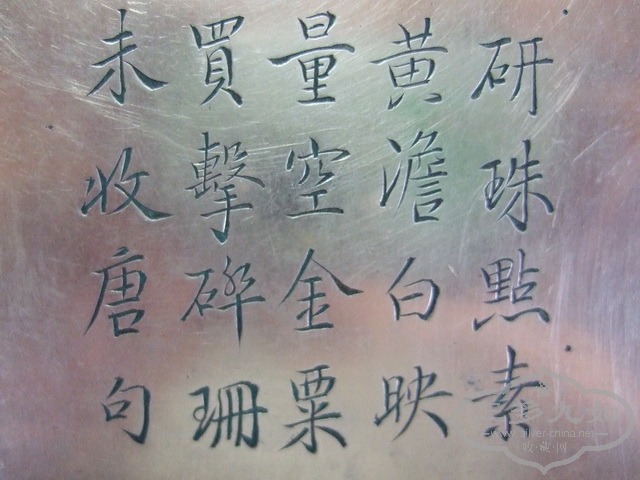 研珠點素
黃澹白映
量空金粟
買擊碎珊
未收唐句
silver-china.net
收·藏·网